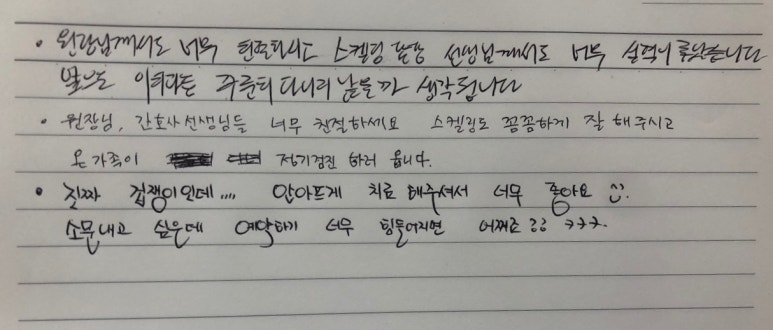 • 원장님께서도 너무 친절하시고 스켈링 담당 선생님께서도 너무 실력이 훌륭합니다
앞으로 이 치과는 꾸준히 다니리 생각됩니다
• 원장님, 간호사선생님들 너무 친절하세요 스켈링도 꼼꼼하게 잘 해주시고
온 가족이 정기검진 하러 옵니다.
• 진짜 겁쟁이인데.... 안아프게 치료 해주셔서 너무 좋아요 :).
소문내고 싶은데 예약하기 너무 힘들어지면 어쩌죠?? ㅋㅋㅋ.